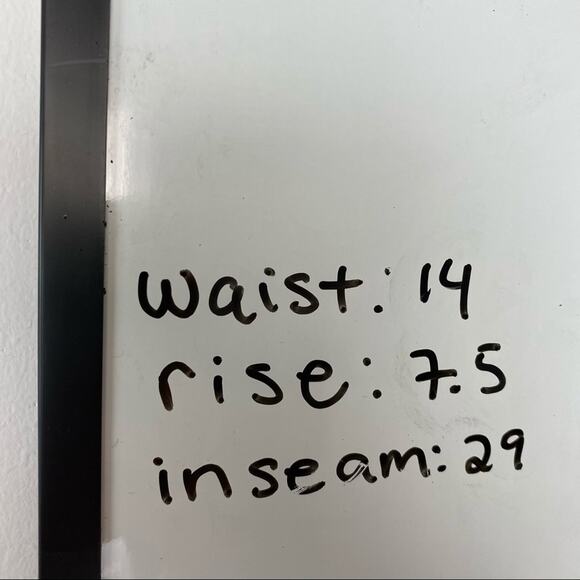 waist: 14
rise: 7.5
inseam: 29